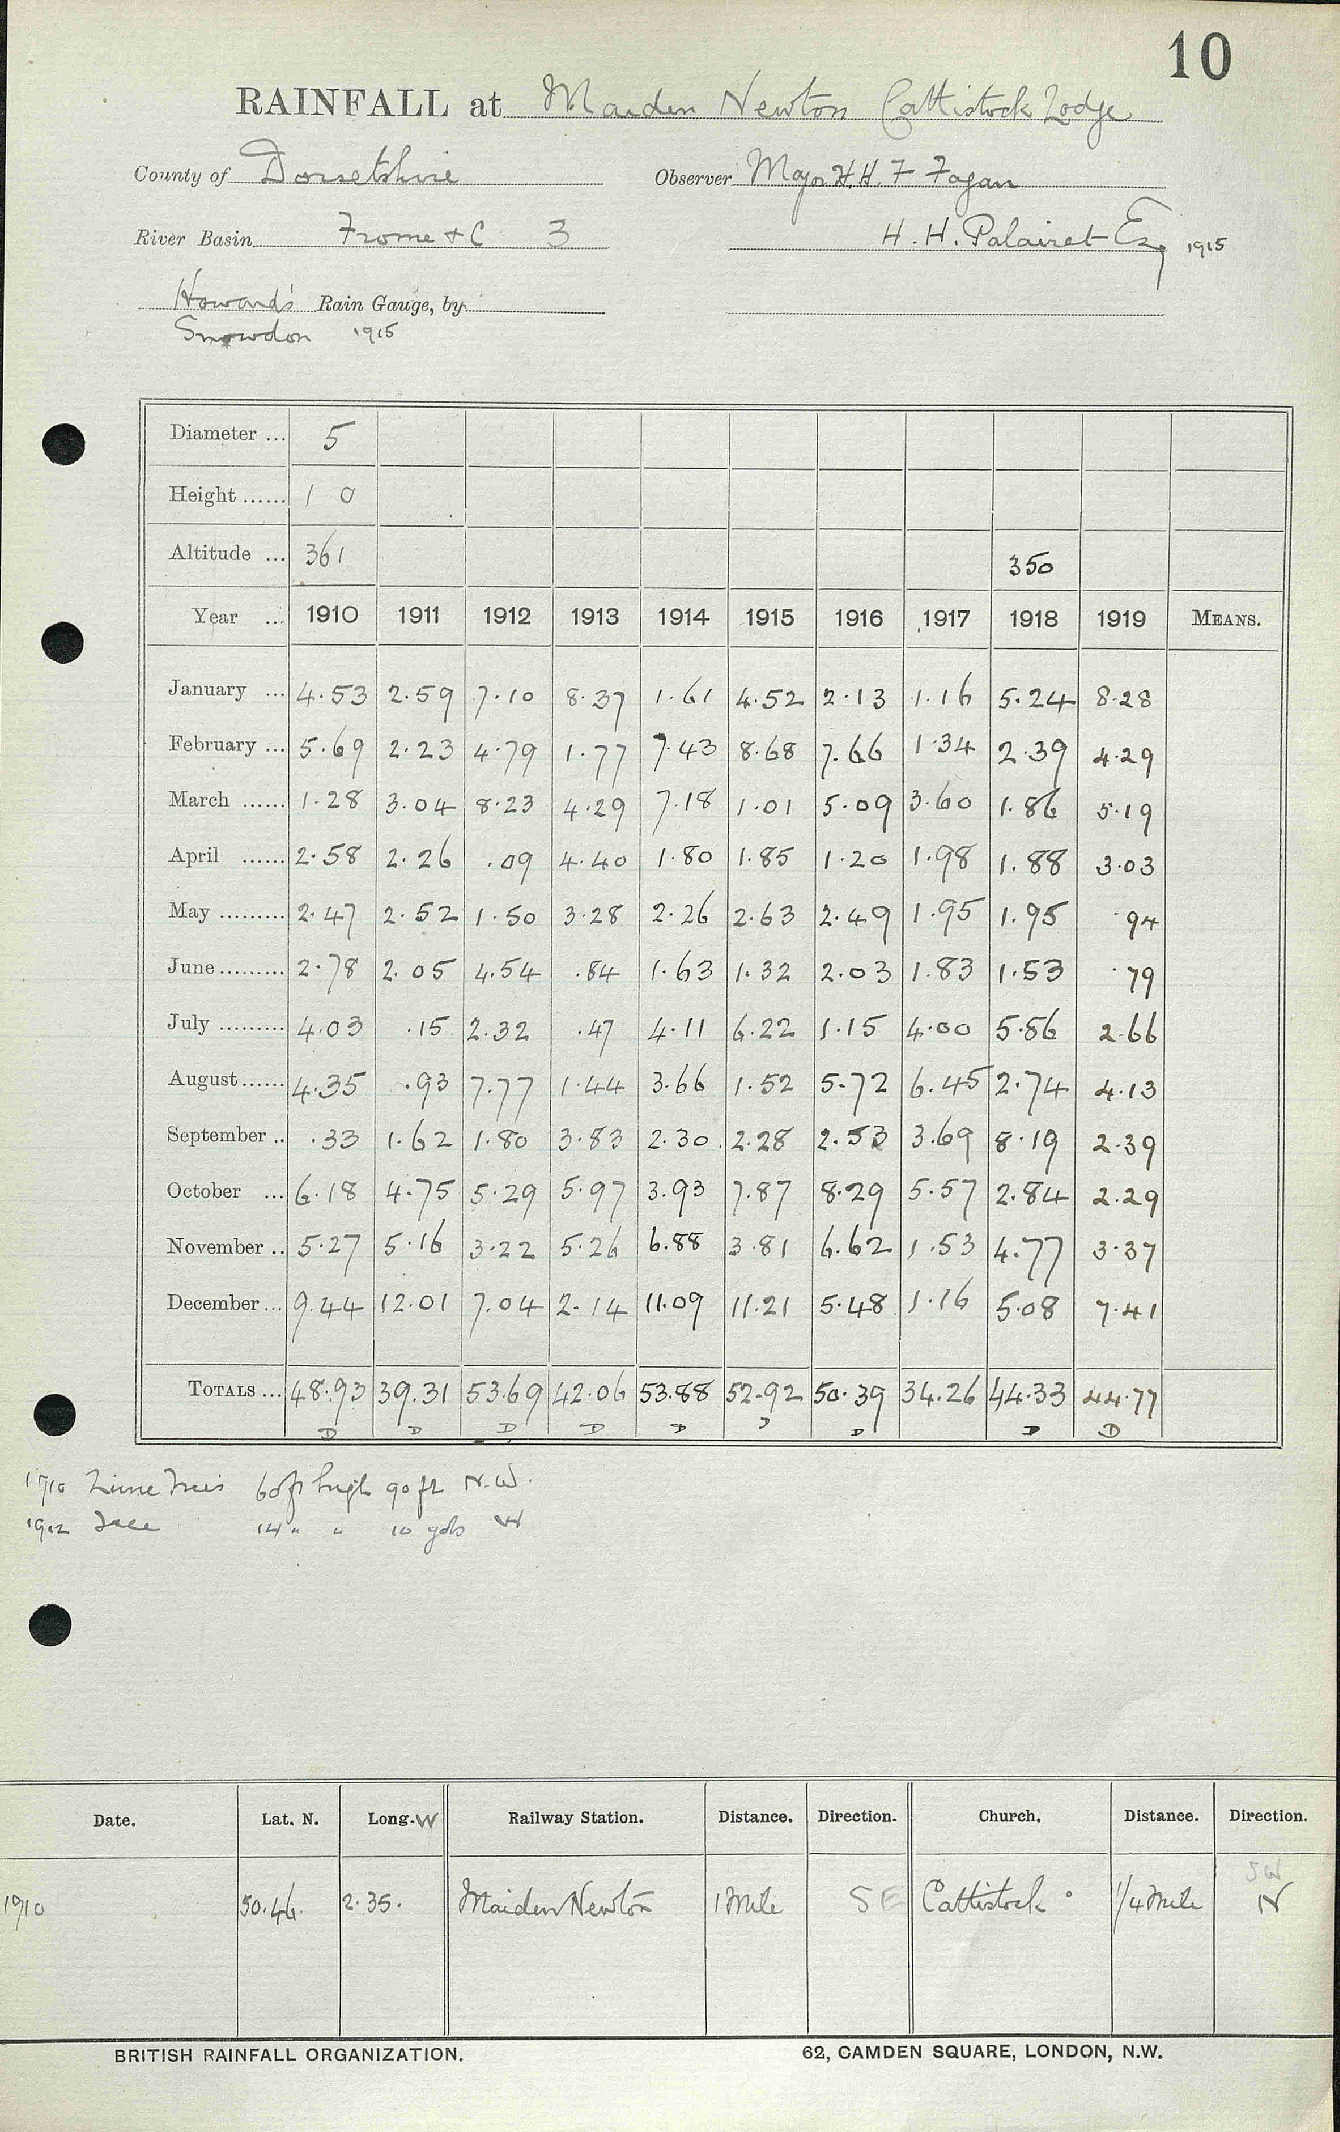 10
RAINFALL at Maiden Newton Cattistock Lodge
County of Dorsetshire Observer Major H. H. F Fagan
River Basin Frome &C 3 H. H. Palairet Esq 1915
Howard's Rain Gauge, by
Snowdon 1915
Diameter ... 5
Height ...... 1 0
Altitude ... 361 350
Year ... 1910 1911 1912 1913 1914 1915 1916 1917 1918 1919 MEANS.
January ... 4.53 2.59 7.10 8.37 1.61 4.52 2.13 1.16 5.24 8.28
February ... 5.69 2.23 4.79 1.77 7.43 8.68 7.66 1.34 2.39 4.29
March ...... 1.28 3.04 8.23 4.29 7.18 1.01 5.09 3.60 1.86 5.19
April ...... 2.58 2.26 .09 4.40 1.80 1.85 1.20 1.98 1.88 3.03
May ......... 2.47 2.52 1.50 3.28 2.26 2.63 2.49 1.95 1.95 .94
June ......... 2.78 2.05 4.54 .84 1.63 1.32 2.03 1.83 1.53 .79
July ......... 4.03 .15 2.32 .47 4.11 6.22 1.15 4.00 5.86 2.66
August ...... 4.35 .93 7.77 1.44 3.66 1.52 5.72 6.45 2.74 4.13
September .. .33 1.62 1.80 3.83 2.30 2.28 2.53 3.69 8.19 2.39
October ... 6.18 4.75 5.29 5.97 3.93 7.87 8.29 5.57 2.84 2.29
November .. 5.27 5.16 3.22 5.26 6.88 3.81 6.62 1.53 4.77 3.37
December ... 9.44 12.01 7.04 2.14 11.09 11.21 5.48 1.16 5.08 7.41
TOTALS ... 48.93 39.31 53.69 42.06 53.88 52.92 50.39 34.26 44.33 44.77
D D D D D D D D D
1910 Lime Trees 60ft high 90 ft N.W.
1912 Tree 14 " " 10 yds W
Date. Lat. N. Long. W Railway Station. Distance. Direction. Church. Distance. Direction.
SW
1910 50.46. 2.35. Maiden Newton 1 Mile SE Cattistock 1/4 Mile N
BRITISH RAINFALL ORGANIZATION. 62, CAMDEN SQUARE, LONDON, N.W.